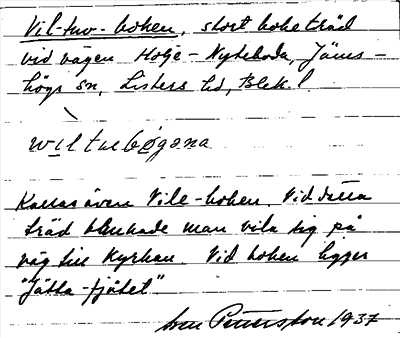 Vil-tuv-boken, stort boketräd
vid vägen Holje-Nyteboda, Jäms-
högs sn, Listers hd, Blek. l.
wiltubøgana
Kallas även Vile-boken. Vid detta
träd brukade man vila sig på
väg till Kyrkan. Vid boken ligger
"Jätta-fjätet"
Pettersson 1937